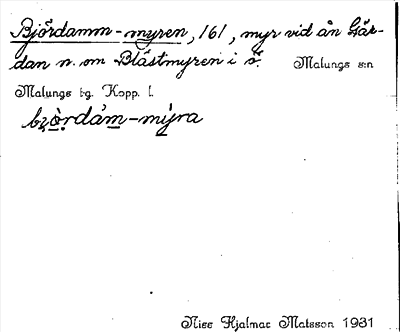 Björdamm-myren, 161, myr vid ån Gär-
dan n. om Blästmyren i s. Malungs s:n
Malungs tg. Kopp. l.
bȷö̀rdám-mýra
Niss Hjalmar Matsson 1931